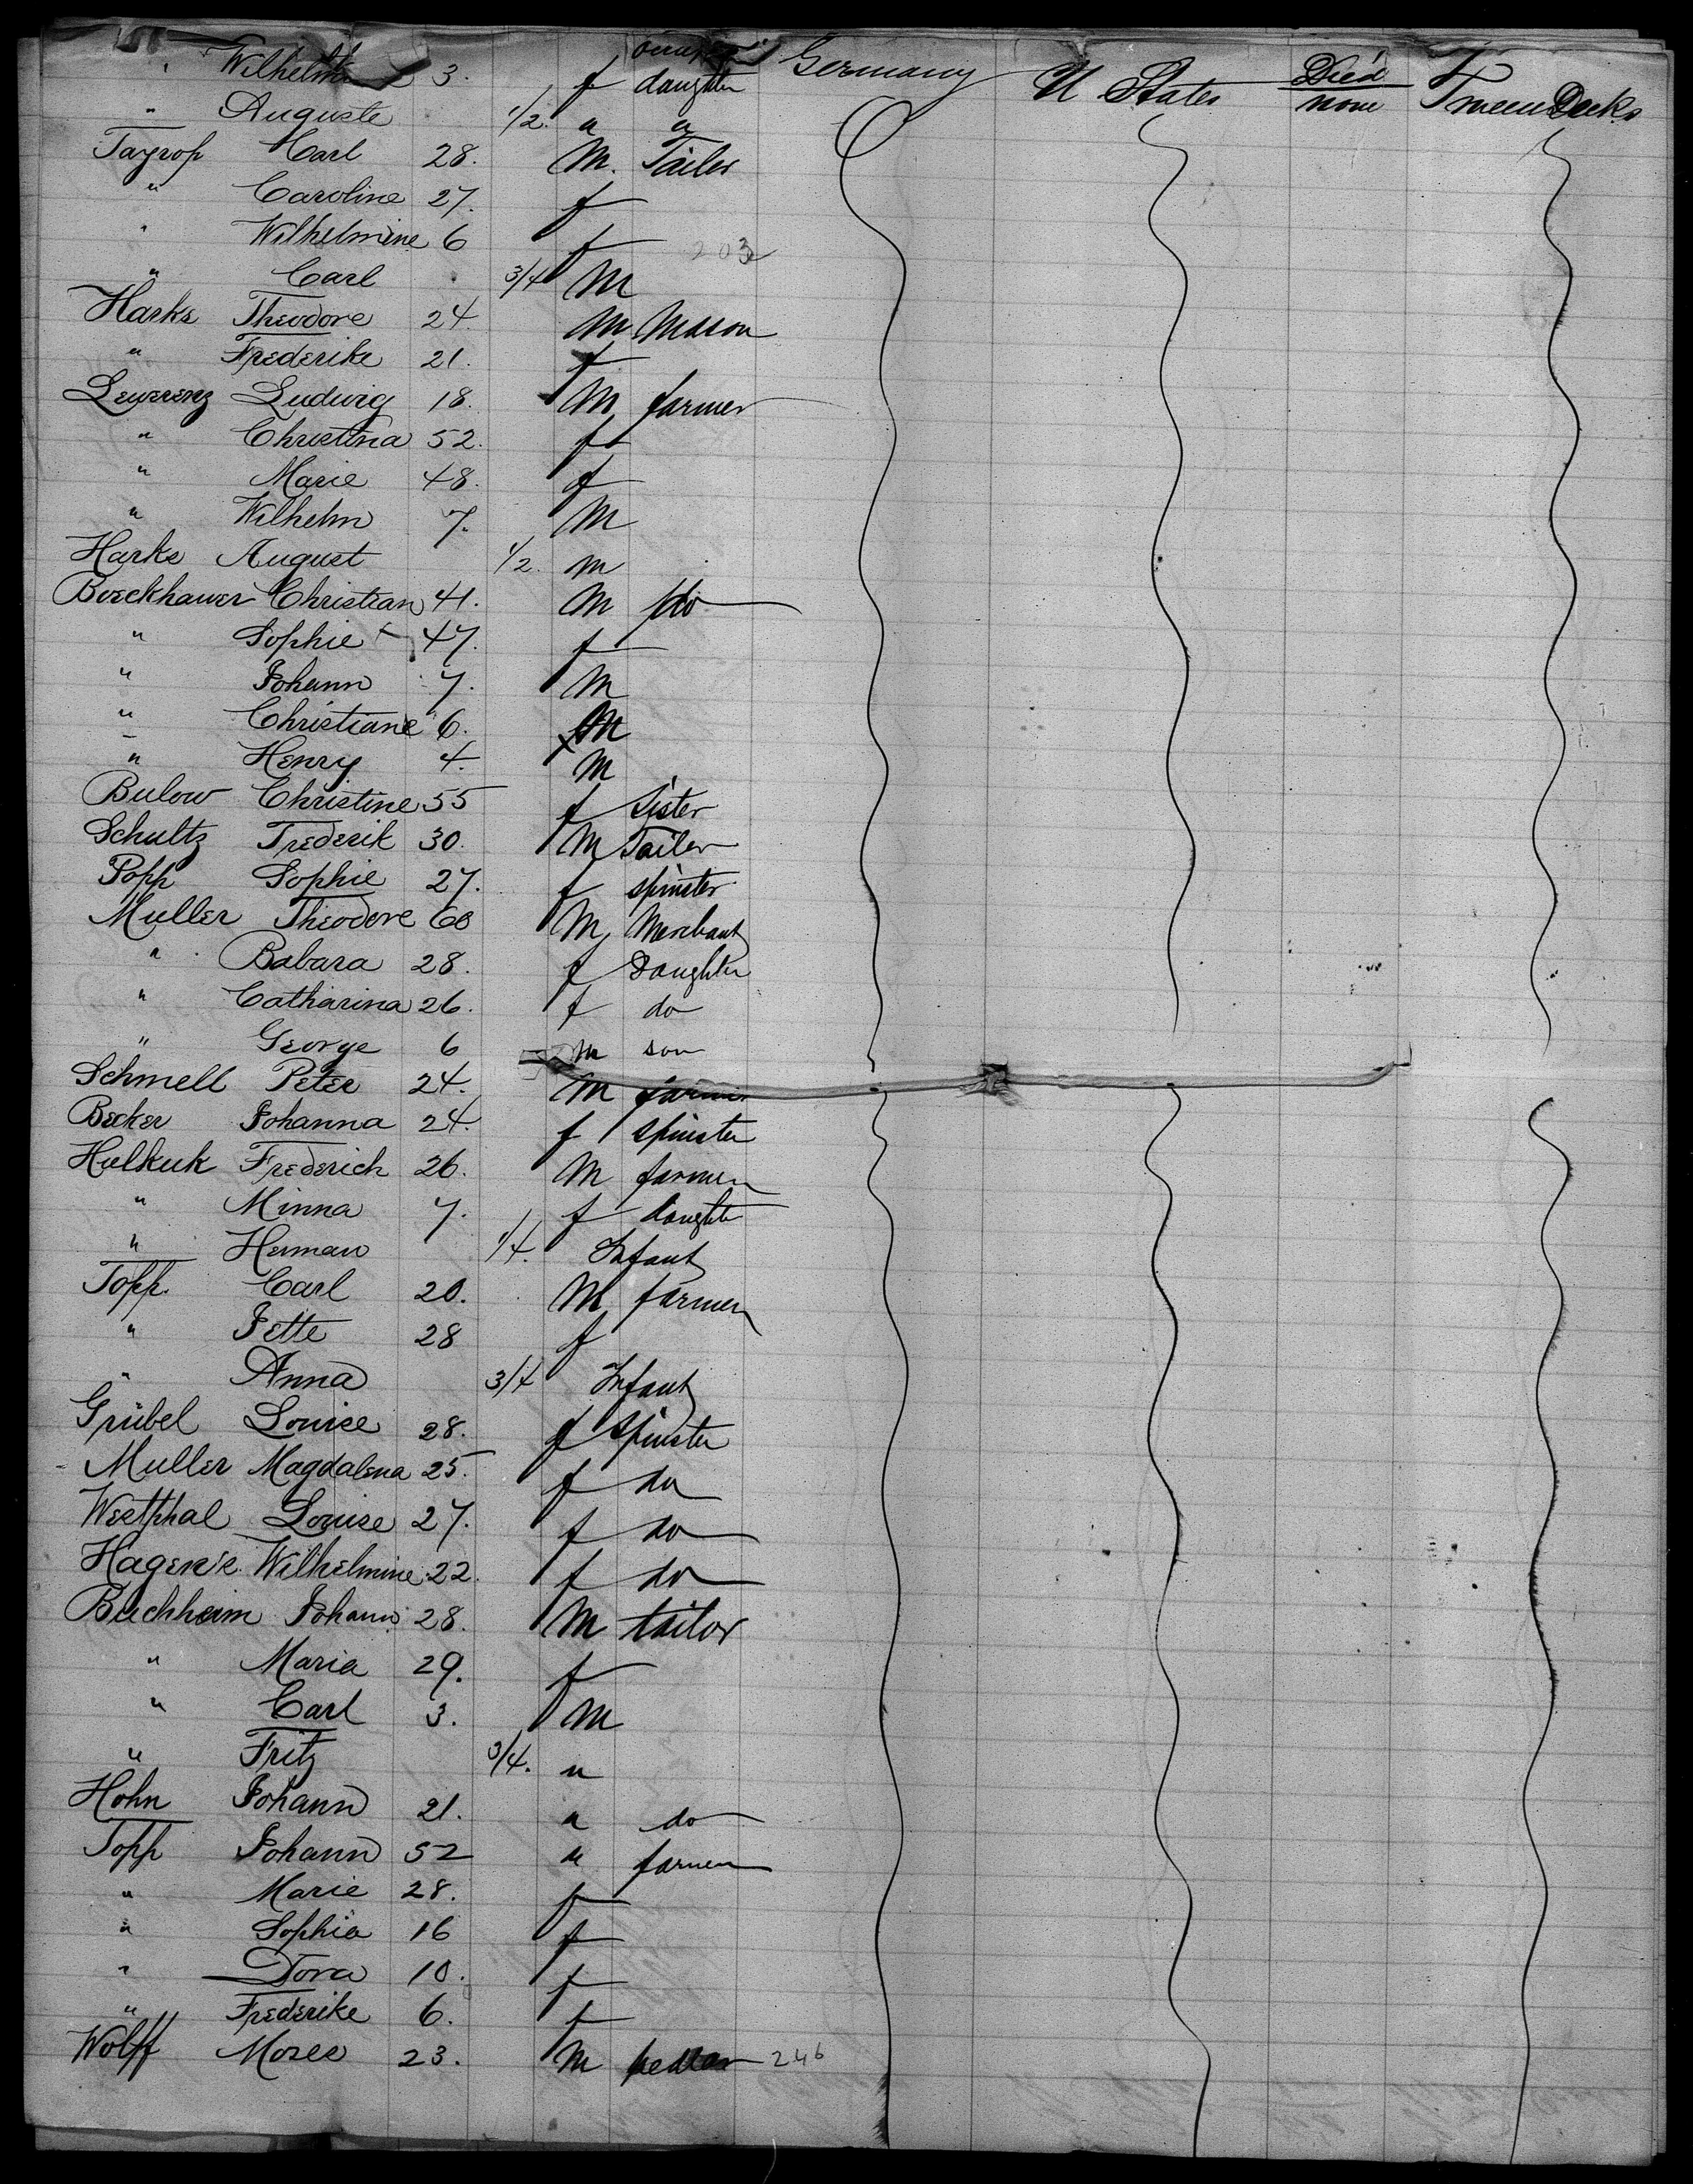 occup Germany U States Died none Tween Decks
" Wilhelm 3. f daughter
" Auguste 1/2. " "
Tayrop Carl 28. M. Tailer
" Caroline 27. f
" Wilhelmine 6 f 203
" Carl 3/4 M
Harks Theodore 24. M Mason
" Frederike 21. f
Lewerenz Ludwig 18. M farmer
" Christina 52. f
" Marie 48. f
" Wilhelm 7. M
Harks August 1/2. m
Boeckhawer Christian 41. M do
" Sophie 47. f
" Johann 7. M
" Christiane 6. M
" Henry 4. M
Bulow Christine 55 f Sister
Schultz Frederik 30. M Tailer
Popp Sophie 27. f spinster
Muller Theodore 60 M Merchant
" Babara 28. f Daughter
" Catharina 26. f do
" George 6 m son
Schmell Peter 24. M farmer
Becker Johanna 24. f spinster
Hulkuk Frederich 26. M farmer
" Minna 7. f daughter
" Herman 1/4. Infant
Topp. Carl 20. M farmer
" Jette 28 f
" Anna 3/4 Infant
Grübel Louise 28. f Spinster
Muller Magdalena 25. f do
Westphal Louise 27. f do
Wilhelmine 22. f do
Buchheim Johann 28. M tailor
" Maria 29. f
" Carl 3. M
" Fritz 3/4. "
Hohn Johann 21. " do
Topp Johann 52 " farmer
" Marie 28. f
" Sophia 16 f
" Dora 10. f
" Frederike 6. f
Wolff Moses 23. M pedler 246